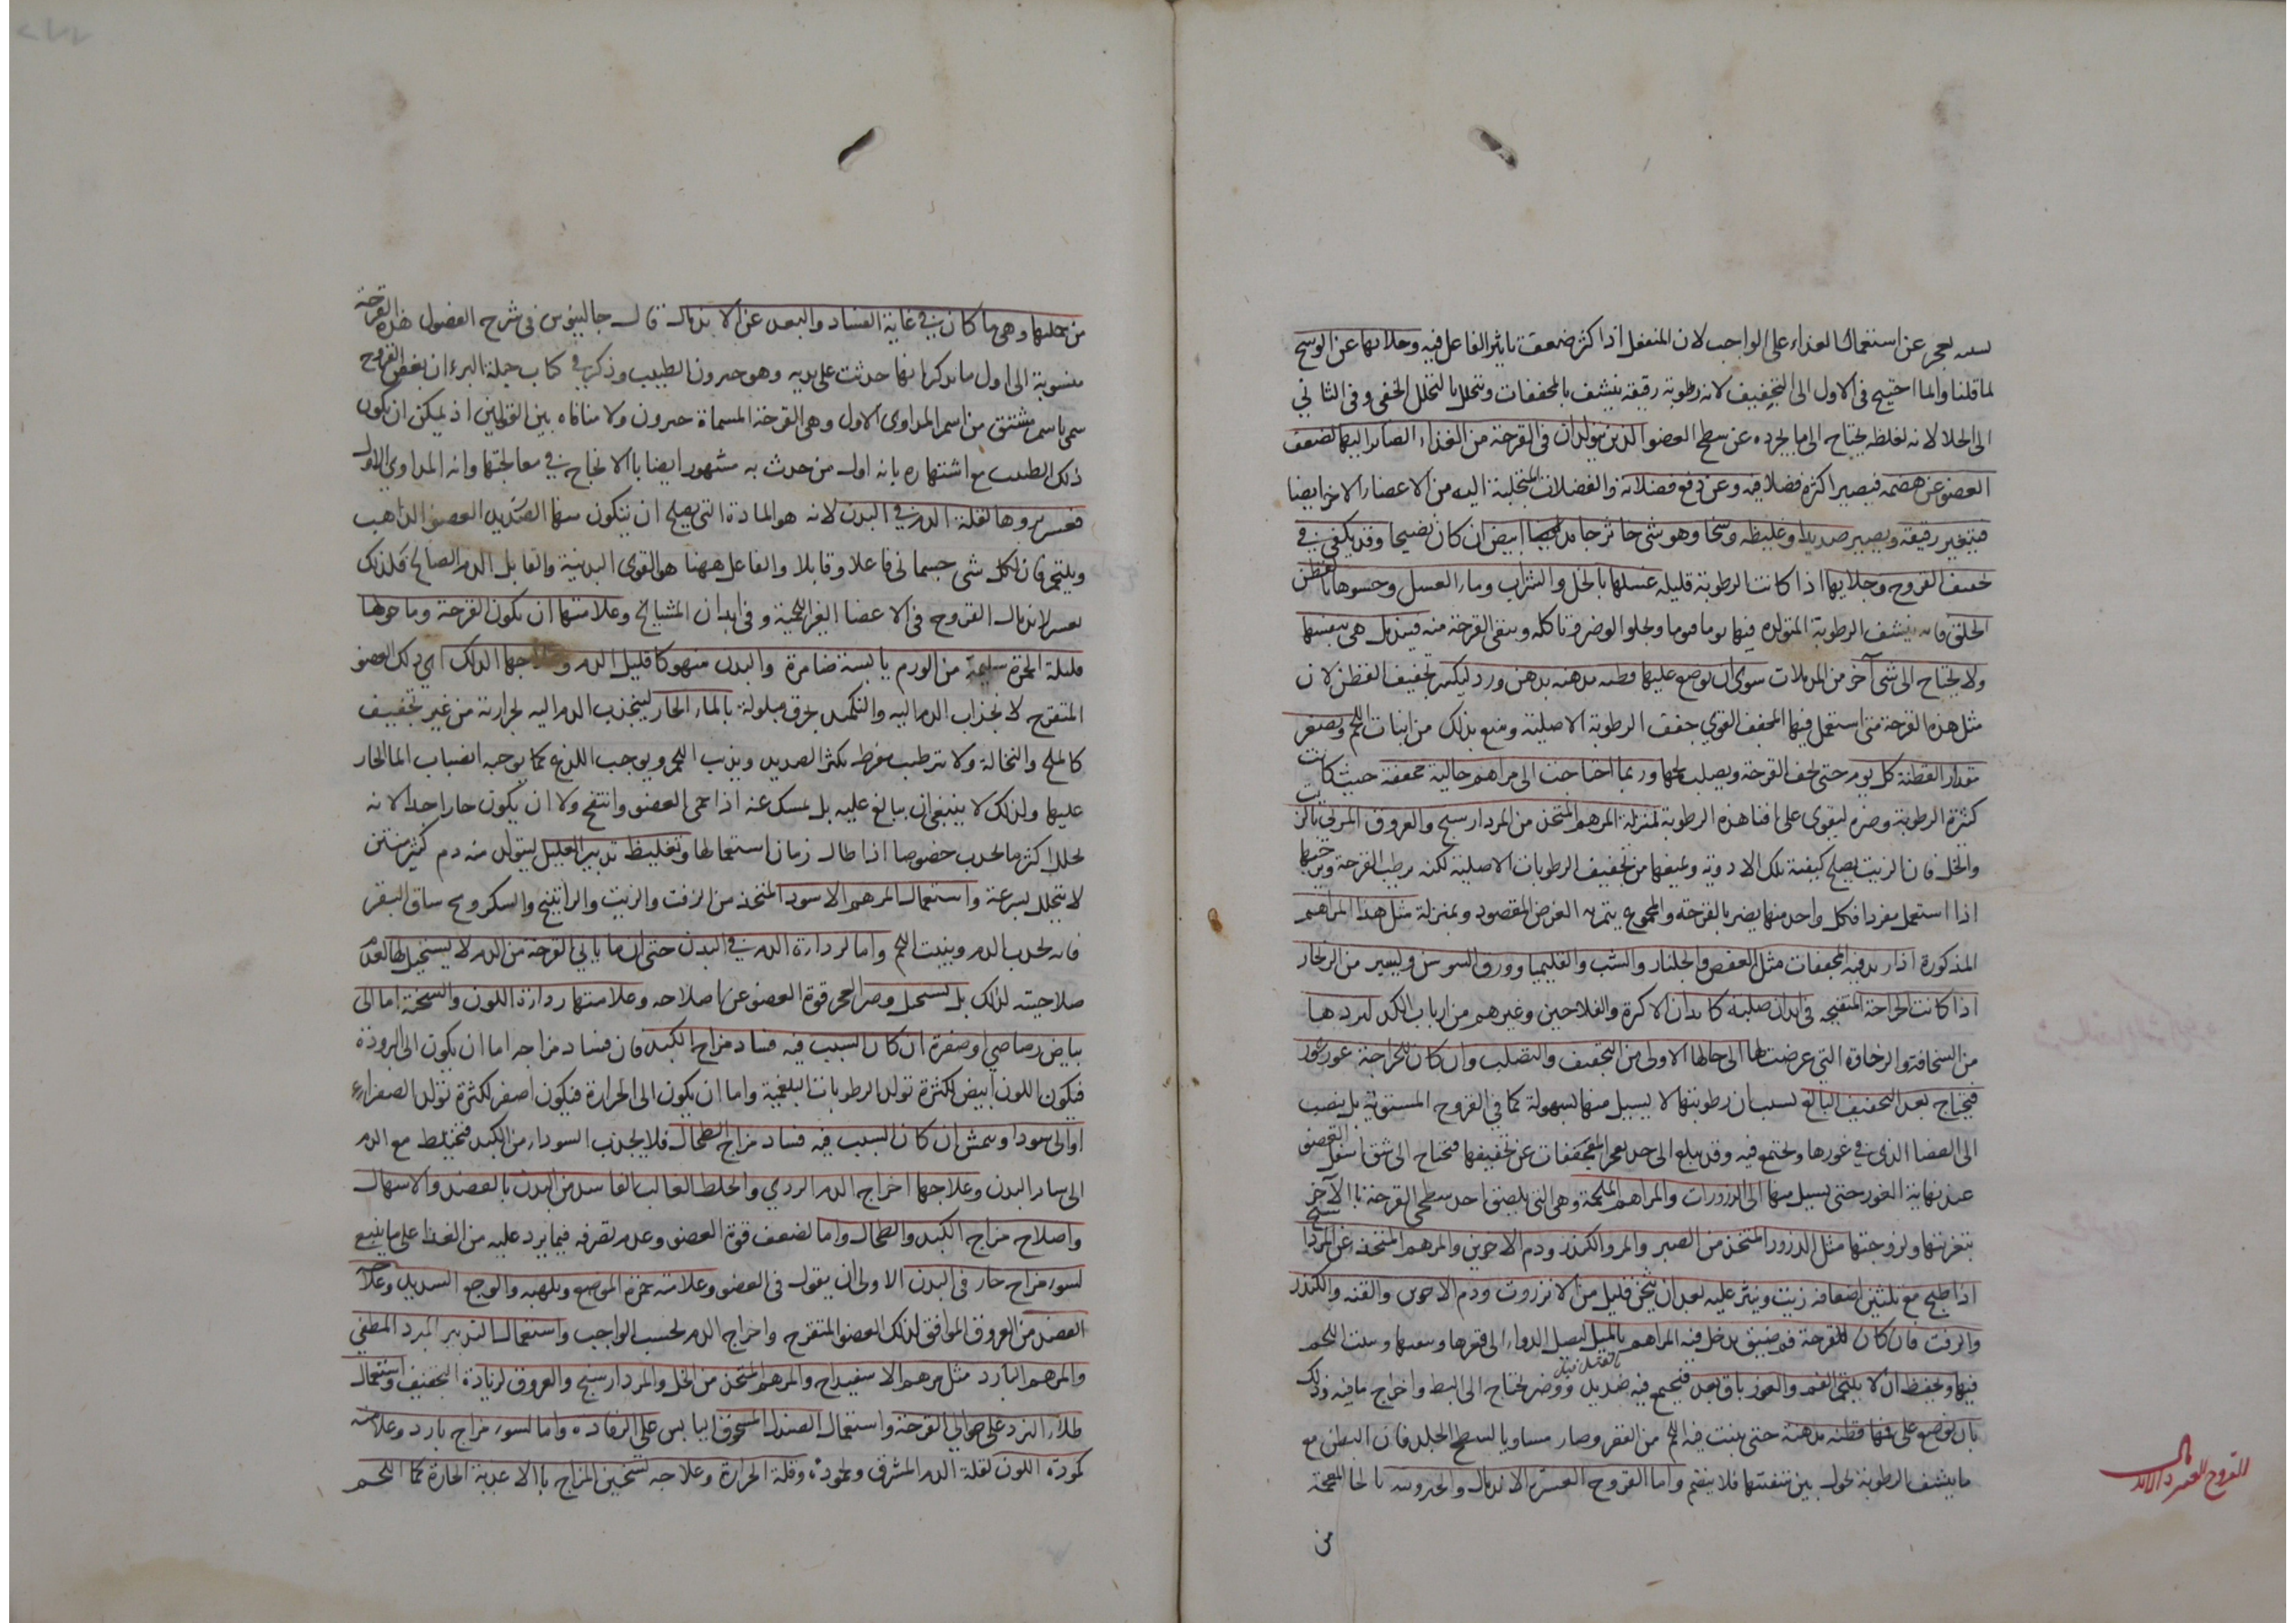 لسعه يعجز عن استعمال الغذاء على الواجب لان المنفعل اذا كثر ضعفت تاثير الفاعل فيه وجلائها عن الوسخ
لما قلنا وانما احتيج فى الاول الى التجفيف لانه رطوبة رقيقة ينشف بالمجففات ويتحلل بالتحلل الخفى وفى الثانى
الى الجلا لانه لغلظه يحتاج الى ما يجرده عن سطح العضو الذين يتولدان فى القرحة من الغذاء الصائر اليها لضعف
العضو عن هضمه فيصير اكثره فضلا فيه وعن دفع فضلاته والفضلات المتحلبة اليه من الاعضاء الاخر ايضا
فيتغير رقيقه ويصير صديدا وغليظه وسخا وهو شى خاثر جامد ابيض ان كان نضيجا وقد يكفى فى
تجفيف القروح وجلايها اذا كانت الرطوبة قليلة غسلها بالخل والشراب وماء العسل وحشوها بالقطن
الخلق فانه ينشف الرطوبة المتولده فيها يوما فيوما ويجلو الوضر وتاكله وينقى القرحة منه فيندمل هى بنفسها
ولا يحتاج الى شى آخر من المدملات سوى ان يوضع عليها قطنه مدهنه بدهن ورد ليكسر تجفيف القطن لان
مثل هذه القرحة متى استعمل فيها المجفف القوى جفف الرطوبة الاصلية ومنع بذلك من انبات اللحم ويصغر
مقدار القطنة كل يوم حتى تجف القرحة ويصلب لحمها وربما احتاجت الى مراهم جالية مجففة حيث كانت
كثيرة الرطوبة وضره ليقوى على افنا هذه الرطوبة بمنزلة المرهم المتخذ من المردارسنج والعروق المربى بالزيت
والخل فان الزيت يصلح كيفية تلك الادوية ويمنعها من تجفيف الرطوبات الاصلية لكنه يرطب القرحة ويرخيها
اذا استعمل مفردا فكل واحد منها يضر بالقرحة والمجموع يتم به الغرض المقصود وبمنزلة مثل هذا المراهم
المذكورة اذا زيد فيه المجففات مثل العفص والجلنار والشب والقليميا وورق السوسن ويسير من الزنجار
اذا كانت الجراحة المتقيحه فى ابدان صلبه كابدان الاكرة والفلاحين وغيرهم من ارباب الكد ليردها
من السخافة والرخاوة التى عرضت لها الى حالها الاولى من التجفيف والتصلب وان كان للجراحة غور
فيحتاج بعد التجفيف البالغ لسبب ان رطوبتها لا يسيل منها بسهولة كما فى القروح المستوية بل ينصب
الى الفضا الذى فى غورها ويجتمع فيه وقد يبلغ الى حد يعجز المجففات عن تجفيفها فيحتاج الى شق اسفل العضو
عند نهاية الغور حتى يسيل منها الى الذرورات والمراهم الملحمة وهى التى يلصق احد سطحى القرحة بالآخر
بتغريتها ولزوجتها مثل الذرور المتخذ من الصبر والمر والكندر ودم الاخوين والمرهم المتخذ من المرداسنج
اذا طبخ مع ثلثين اضعافه زيت وينثر عليه بعد ان يثخن قليل من الانزروت ودم الاخوين والقنه والكندر
والزفت فان كان للقرحة فم ضيق يدخل فيه المراهم بالميل ليصل الدواء الى قعرها وينبت اللحم
فيها ويحفظ ان لا يلتحم الفم والغور باق بعد فيجتمع فيه صديد ووضر يحتاج الى البط واخراج ما فيه وذلك
بان يوضع على فمها قطنه مدهنة حتى ينبت فيه اللحم من القعر وصار مساويا لسطح الجلد فان القطن مع
ما ينشف الرطوبة يحول بين شفتيها فلا ينضم واما القروح العسرة الاندمال والخيرونيه بالخا المعجمة
من
القروح العسرة الاندمال
من يحلها وهى ما كان فى غاية الفساد والبعد عن الاندمال قال جالينوس فى شرح الفصول هذه القرحة
منسوبة الى اول ما يذكر انها حدثت على يديه وهو خيرون الطبيب وذكر فى كتاب حيلة البرء ان بعض القروح
سمى باسم مشتق من اسم المداوى الاول وهى القرحة المسماة خيرون ولا منافاه بين القولين اذ يمكن ان يكون
ذلك الطبيب مع اشتهاره بانه اول من حدث به مشهورا ايضا بالانجاح فى معالجتها وانه المداوى الاول
فعسر بروها لقلة الدم فى البدن لانه هو المادة التى يصلح ان يتكون منها العضو الذاهب
ويلتحم فان لكل شى جسمانى فاعلا وقابلا والفاعل ههنا هو القوى البدنية والقابل الدم الصالح فلذلك
يعسر اندمال القروح فى الاعضا الغير اللحمية وفى ابدان المشايخ وعلامتها ان تكون القرحة وما حولها
قليلة الحمرة سليمة من الورم يابسة ضامرة والبدن منهوكا قليل الدم وعلاجها الدلك اى دلك العضو
المتقرح لانجذاب الدم اليه والتكميد بخرق مبلولة بالماء الحار لينجذب الدم اليه لحرارته من غير تجفيف
كالملح والنخالة ولا ترطيب مفرط يكثر الصديد ويذيب اللحم ويوجب اللذع كما يوجبه انصباب الما الحار
عليها ولذلك لا ينبغى ان يبالغ عليه بل يمسك عنه اذا حمى العضو وانتفخ ولا ان يكون حارا جدا لانه
يحلل اكثر ما يجذب خصوصا اذا طال زمان استعمالها وتغليظ تدبير العليل ليتولد منه دم كثير متين
لا يتحلل بسرعة واستعمال المرهم الاسود المتخذ من الزفت والزيت والراتينج والسكر ومخ ساق البقر
فانه يجذب الدم وينبت اللحم واما لرداءة الدم فى البدن حتى ان ما ياتى القرحة من الدم لا يستحيل لحما لعدم
صلاحيته لذلك بل يستحيل وضرا لعجز قوة العضو عن اصلاحه وعلامتها رداءة اللون والسحنة اما الى
بياض رصاصى او صفرة ان كان السبب فيه فساد مزاج الكبد فان فساد مزاجه اما ان يكون الى البرودة
فيكون اللون ابيض لكثرة تولد الرطوبات البلغمية واما ان يكون الى الحرارة فيكون اصفر لكثرة تولد الصفراء
او الى سواد ونمش ان كان السبب فيه فساد مزاج الطحال فلا يجذب السوداء من الكبد فيختلط مع الدم
الى سائر البدن وعلاجها اخراج الدم الردى والخلط الغالب الفاسد من البدن بالفصد والاسهال
واصلاح مزاج الكبد والطحال واما لضعف قوة العضو وعدم تصرفه فيما يرد عليه من الغذا على ما ينبغى
لسوء مزاج حار فى البدن الاولى ان يقول فى العضو وعلامته حمرة الموضع وتلهبه والوجع الشديد وعلاجه
الفصد من العروق الموافق لذلك العضو المتقرح واخراج الدم بحسب الواجب واستعمال التدبير المبرد المطفى
والمرهم البارد مثل مرهم الاسفيداج والمرهم المتخذ من الخل والمردارسنج والعروق لزيادة التجفيف واستعمال
طلاء البرد على حوالى القرحة واستعمال الصندل المسحوق اليابس على الرفاده واما لسوء مزاج بارد وعلامته
كمودة اللون لقلة الدم المشرق وجموده وقلة الحرارة وعلاجه تسخين المزاج بالاغذية الحارة كما اللحم